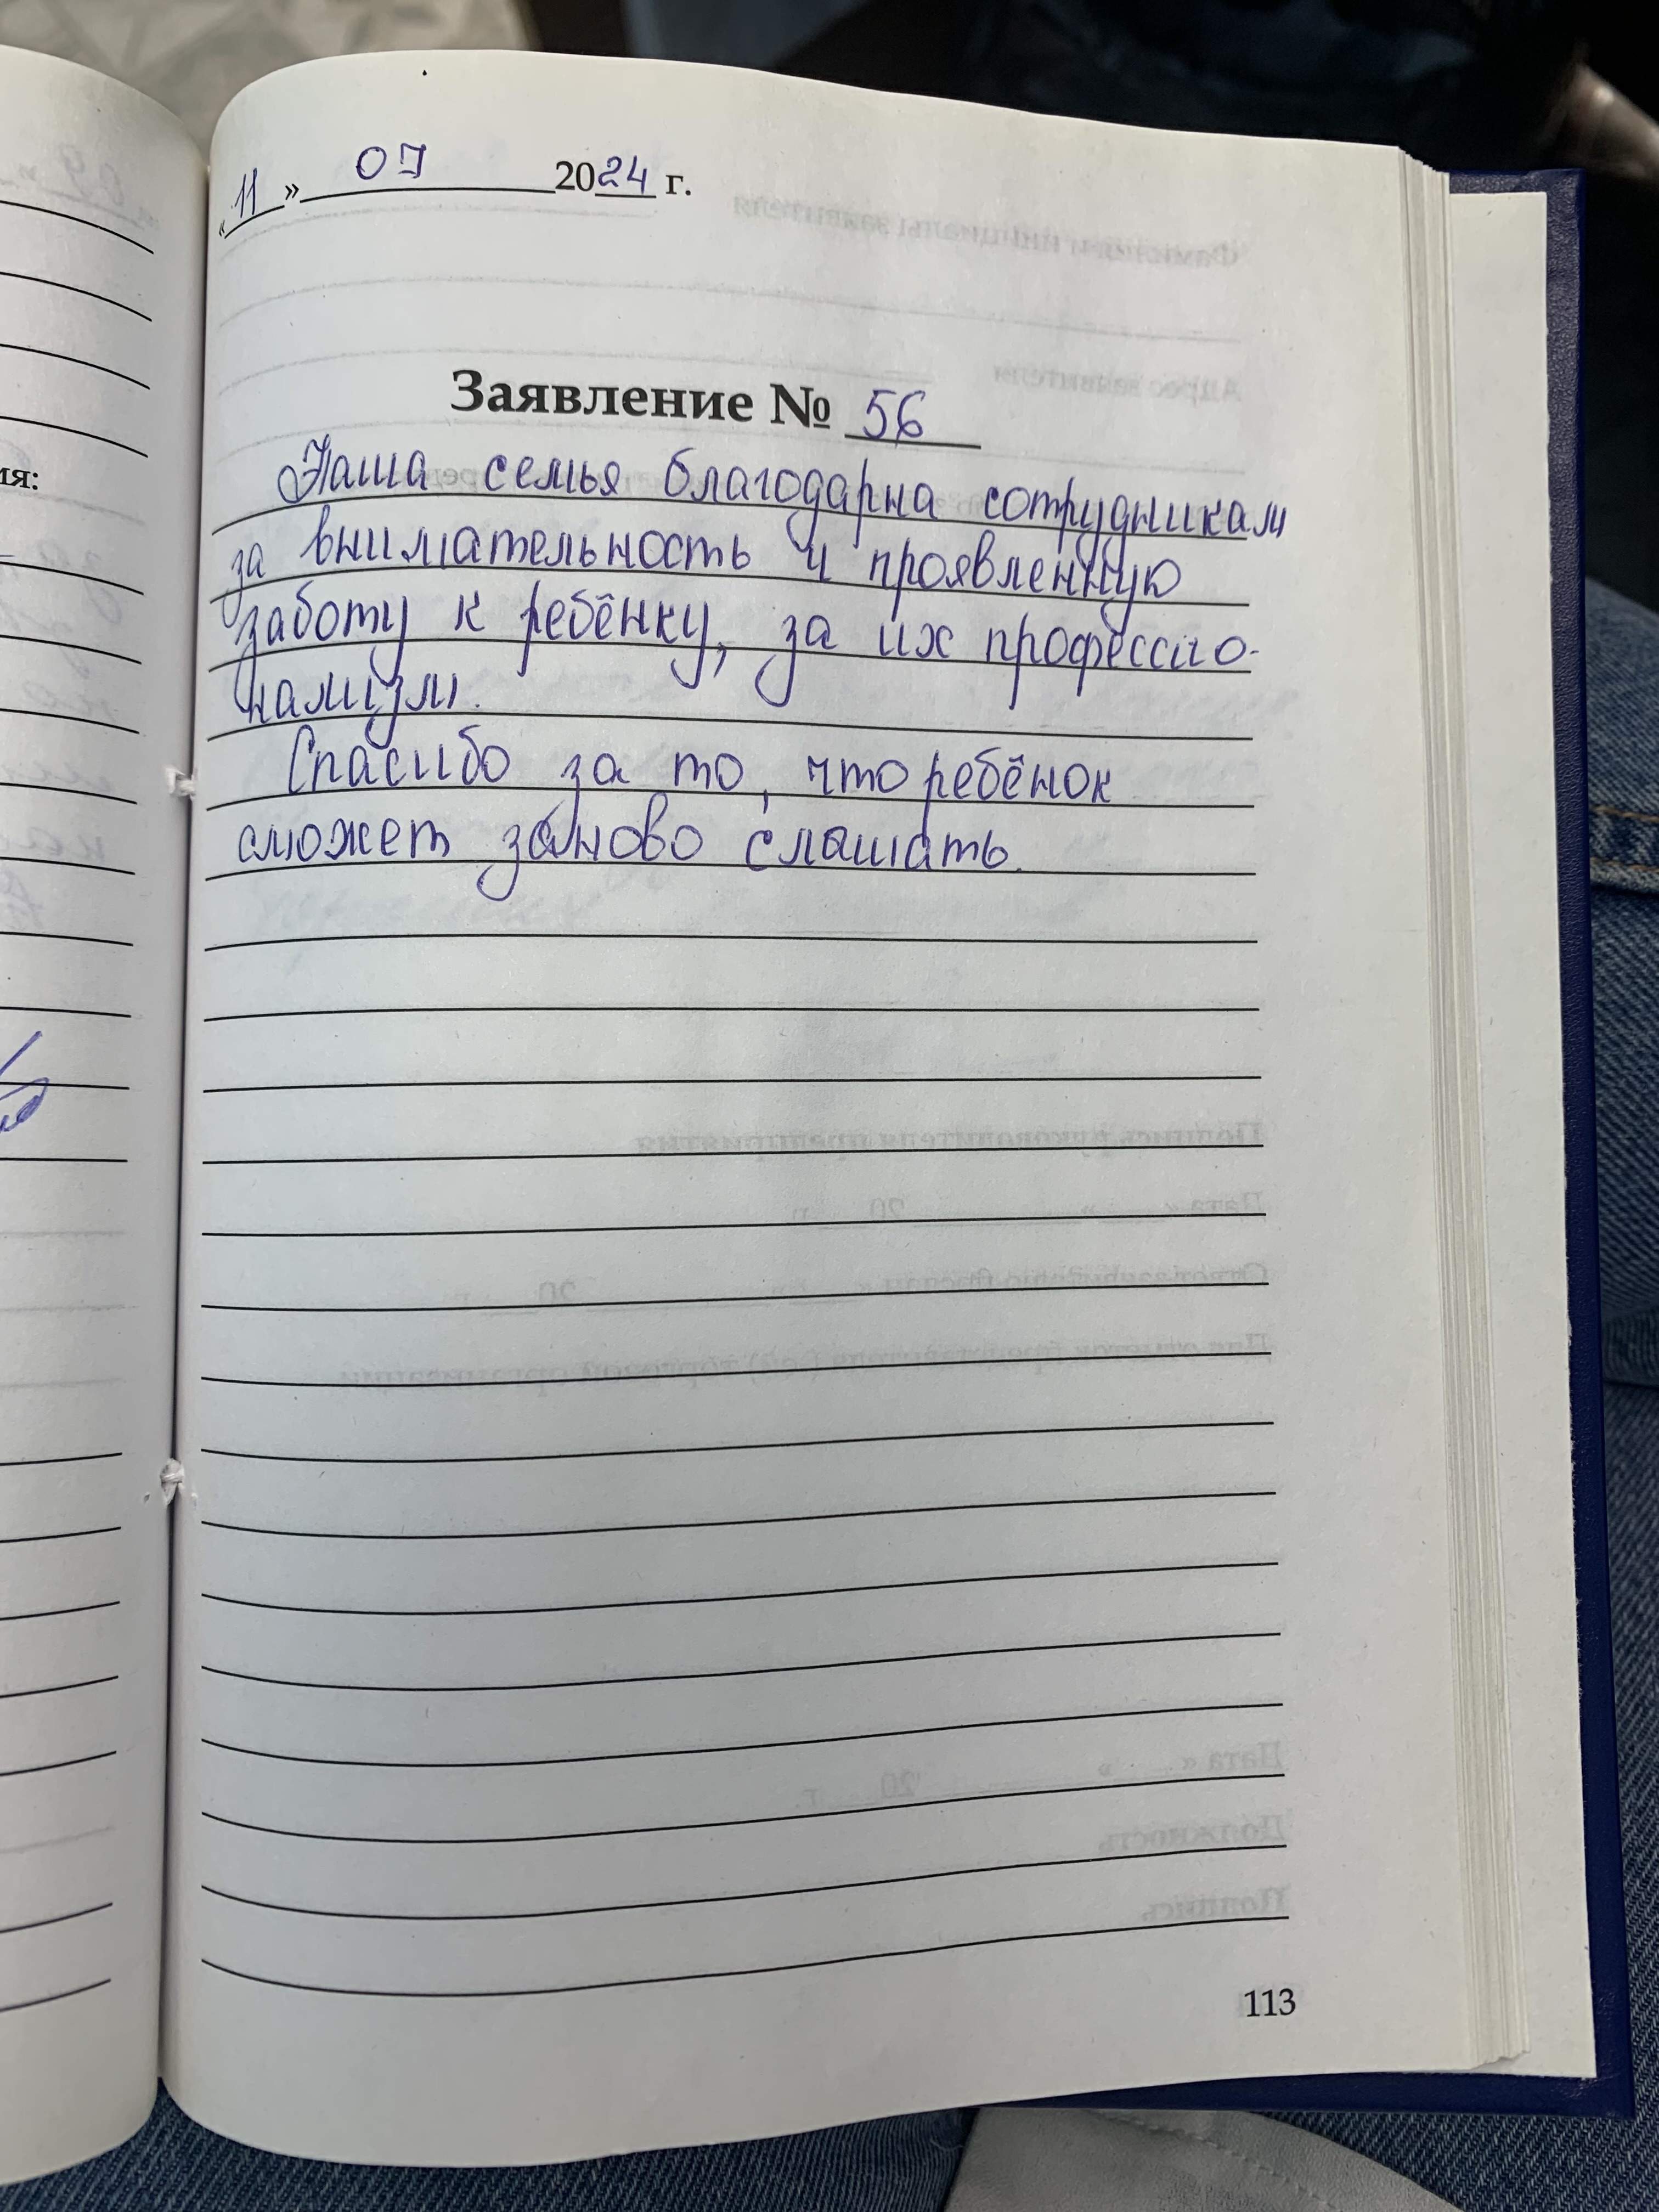 «11» 07 2024 г.
Заявление № 56
Наша семья благодарна сотрудникам
за внимательность и проявленную
заботу к ребёнку, за их профессио-
нализм.
Спасибо за то, что ребёнок
сможет заново слашать.
ия:
113